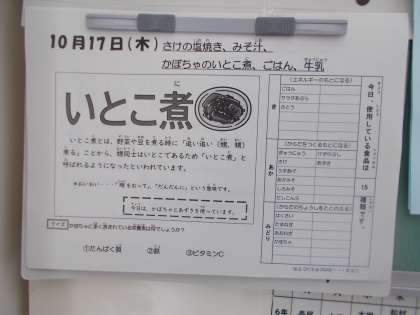 10月17日(木) さけの塩焼き、みそ汁、
かぼちゃのいとこ煮、ごはん、牛乳
いとこ煮
いとこ煮とは、野菜や豆を煮る時に「追い追い(甥、甥)
煮る」ことから、甥同士はいとこであるため「いとこ煮」と
呼ばれるようになったといわれています。
今日は、かぼちゃとあずきを使っています。
クイズ かぼちゃに多く含まれている栄養素は何でしょうか?
①たんぱく質 ②鉄 ③ビタミンC
今日、使用している食品は
15
種類です。
(エネルギーのもとになる)
き
ごはん
さとう
(からだをつくるもとになる)
あか
ぎゅうにゅう
さけ
あずき
あかみそ
しろみそ
(からだのちょうしをととのえる)
みどり
はくさい
たまねぎ
かぼちゃ
6年